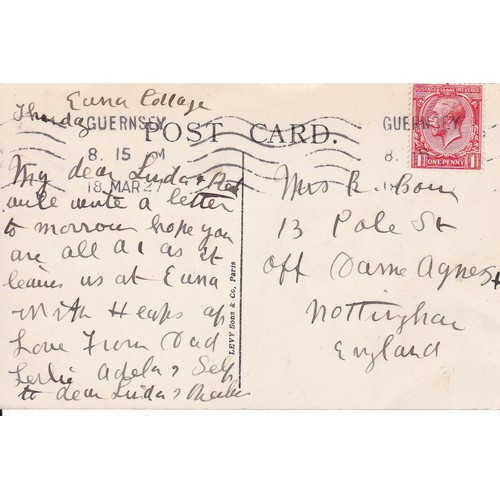 Euna Cottage
Thursday
GUERNSEY
8. 15 PM
18 MAR 27
POST CARD.
GUERNSEY
8.
ONE PENNY
My dear Linda &
will write a letter
to morrow hope you
are all A1 as it
leaves us at Euna
with Heaps of
Love From Dad
Leslie Adela & Self
to dear Linda &
LEVY Sons & Co, Paris
Mrs R. Bow
13 Pole St
off Dame Agnes St
Nottingham
England